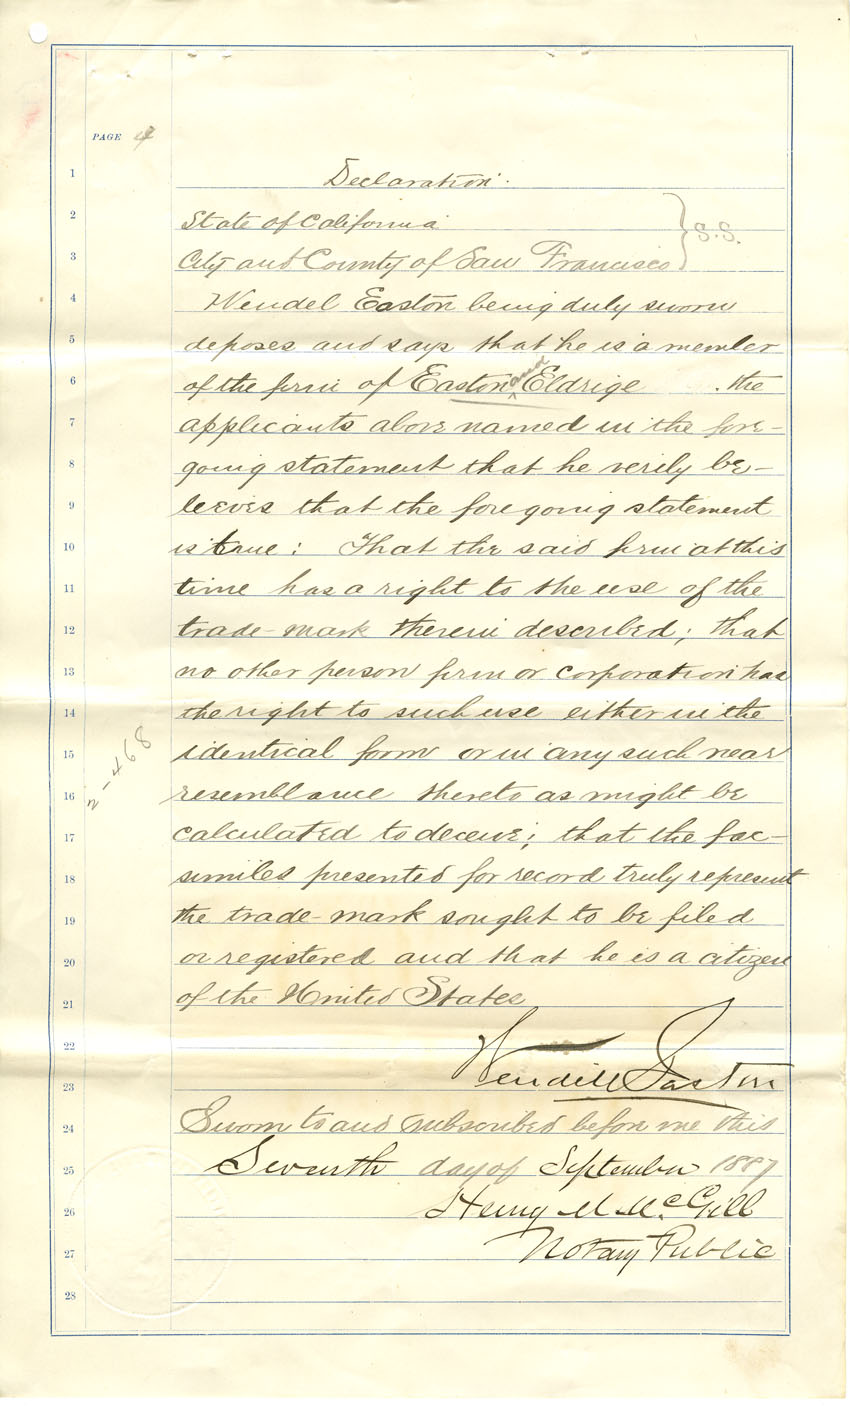 PAGE 4
1 Declaration.
2 State of California } S.S.
3 City and County of San Francisco
4 Wendel Easton being duly sworn
5 deposes and says that he is a member
6 of the firm of Easton and Eldrige . the
7 applicants above named in the fore-
8 going statement that he verily be-
9 leeves that the foregoing statement
10 is true : That the said firm at this
11 time has a right to the use of the
12 trade-mark therein described; that
13 no other person firm or corporation has
14 the right to such use either in the
15 identical form or in any such near
16 resemblance thereto as might be
17 calculated to deceive; that the fac-
18 similes presented for record truly represent
19 the trade-mark sought to be filed
20 or registered and that he is a citizen
21 of the United States
22
23 Wendell Easton
24 Sworn to and subscribed before me this
25 Seventh day of September 1887
26 Henry M. McGill
27 Notary Public
28
2-468